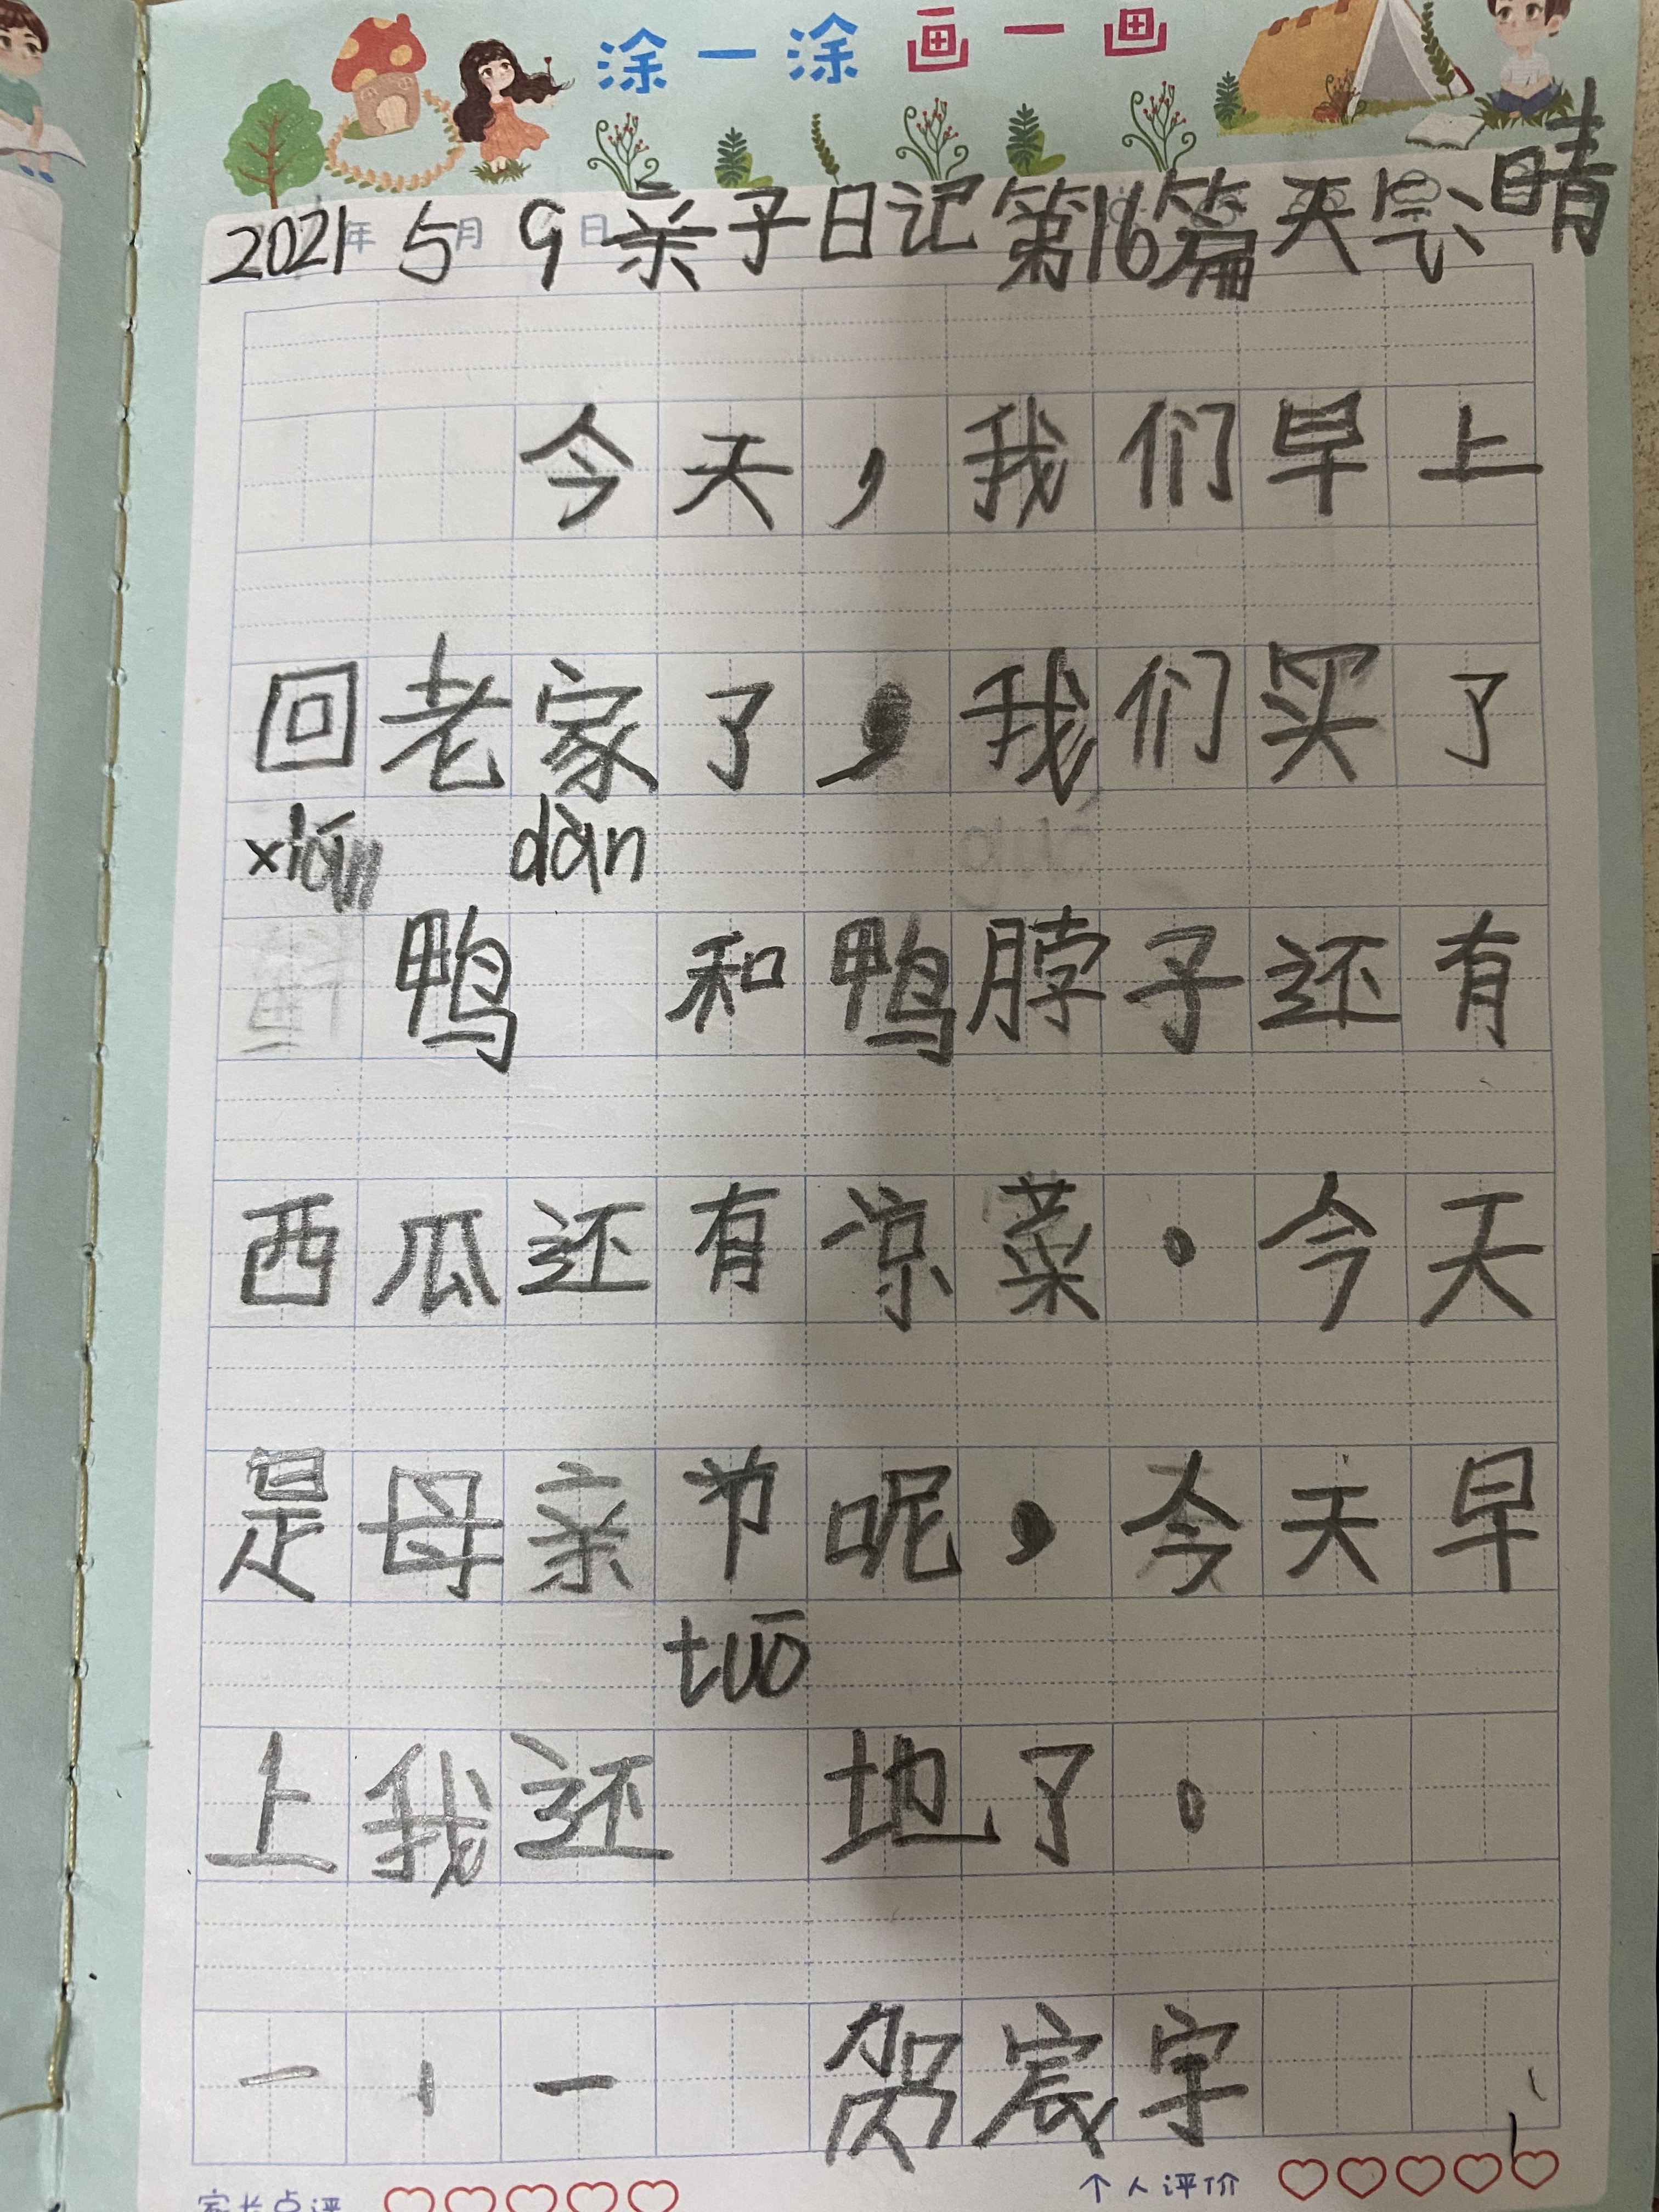 涂一涂画一画
2021年5月9日亲子日记第16篇天气:晴
今天，我们早上
回老家了，我们买了
xián dàn
鸭 和鸭脖子还有
西瓜还有凉菜。今天
是母亲节呢，今天早
tuō
上我还 地了。
一 1 一 贺宸宇
家长点评 个人评价